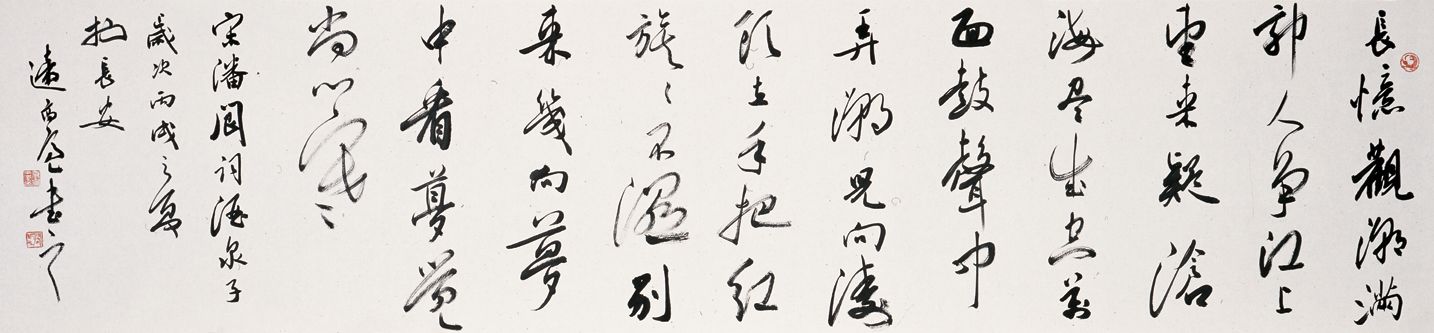 長憶觀潮滿
郭人爭江上
望来疑滄
海尽成空萬
面鼓聲中
弄潮兒向濤
頭立手把紅
旗〻不濕別
来幾向夢
中看夢覺
尚心寒
宋潘閬詞酒泉子
歲次丙戌之夏
於長安
書